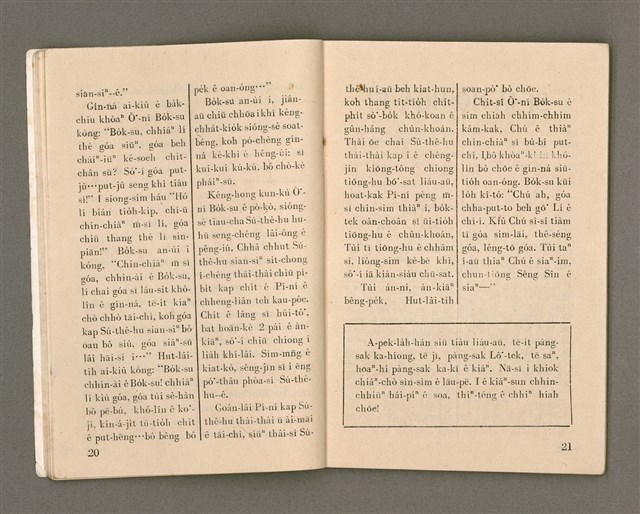 sian-siⁿ--ê."
Gín-ná ai-kiû ê ba̍k-
chiu khòaⁿ Ò͘-ni Bo̍k-su
kóng: "Bo̍k-su, chhiáⁿ lí
thè góa siūⁿ, góa beh
chāi-iūⁿ kè-soeh chit-
chân sū? Só͘-í góa put-
jû⋯put-jû seng khì tiâu
sí!" I siong-sim háu "Hó
lí bián tio̍h-kip, chí-ū
chin-chiàⁿ m̄-sī lí, góa
chiū thang thè lí sin-
piān!" Bo̍k-su an-ùi i
kóng, "Chin-chiàⁿ m̄ sī
góa, chhin-ài ê Bo̍k-su,
lí chai góa sī láu-si̍t khó-
lîn ê gín-ná, tē-it kiaⁿ
chò chhò tāi-chì, koh góa
kap Sú-thê-hu sian-siⁿ bô
oan bô siû, góa siāⁿ-sū
lâi hāi-sí i⋯" Hut-lâi-
tih ai-kiû kóng: "Bo̍k-su
chhin-ài ê Bo̍k-su! chhiáⁿ
lí kiù góa, góa tùi sè-hàn
bô pē-bú, khó-lîn ê ko͘-
jî, kin-á-jit tú-tio̍h chit
ê put-hēng⋯bô bêng bô
20
pe̍k ê oan-óng⋯"
Bo̍k-su an-ùi i, jiân-
āu chiū chhōa i khì kéng-
chhat-kio̍k siông-sè soat-
bêng, koh pó-chèng gín-
ná kè-khì ê hêng-ûi: sī
kui-kui kú-kú, bô chò-kè
pháiⁿ-sū.
Kéng-hong kun-kù Ò͘-
ni Bo̍k-su ê pò-kò, siông-
sè tiau-cha Sú-thê-hu hu-
hū seng-chêng lāi-ōng ê
pêng-iú. Chhâ chhut Sú-
thê-hu sian-siⁿ sit-chong
í-chêng thài-thài chiū pī-
bit kap chit ê Pí-ni ê
chheng-liân teh kau-pôe.
Chit ê lâng sī húi-tô͘,
bat hoān-kè 2 pái ê àn-
kiāⁿ, só͘-í chiū chiong i
lia̍h khí-lâi. Sim-mn̄g ê
kiat-kó, sêng-jīn sī i èng
pó͘-thâu phòa-sí Sú-thê-
hu--ê.
Goân-lâi Pí-ni kap Sú-
thê-hu thài-thài ū ài-māi
ê tāi-chì, siūⁿ thâi-sí Sú-
thê-hu í-āu beh kiat-hun,
koh thang tit-tio̍h chi̍t-
phit sò͘-bo̍k khó-koan ê
gûn-hâng chûn-khoán.
Thâi ōe chai Sú-thê-hu
thài-thài kap i ê chêng-
jîn kiōng-tông chiong
tiōng-hu bô͘-sat liáu-āu,
hoat-kak Pí-ni pēng m̄-
sī chin-sim thiàⁿ i, bo̍k-
tek oân-choân sī ùi-tio̍h
tiōng-hu ê chûn-khoán.
Tùi tī tiōng-hu ê chhám
sí, liông-sim kè-bē khì,
só͘-í iā kiàn-siàu chū-sat.
Tùi án-ni, àn-kiāⁿ
bêng-pe̍k, Hut-lâi-tih
soan-pò͘ bô chōe.
Chit-sî Ò͘-ni Bo̍k-su ê
sim chiah chhim-chhim
kám-kak, Chú ê thiàⁿ
chin-chiàⁿ sī bû-bî put-
chì, I bô khòaⁿ-khin khó-
lîn bô chōe ê gín-ná siū-
tio̍h oan-óng. Bo̍k-su kūi
lo̍h kî-tó: "Chú ah, góa
chha-put-to beh gō͘ Lí ê
chí-ì. Kîû Chú sî-sî tiàm
tī góa sim-lāi, thê-séng
góa, léng-tō góa. Tùi taⁿ
í-āu thiaⁿ Chú ê siaⁿ-im,
chun-tiōng Sèng Sîn ê
siaⁿ—"
A-pek-la̍h-hán siū tiàu liáu-āu, tē-it pàng-
sak ka-hiong, tē jī, pàng-sak Lô͘-tek, tē saⁿ,
hoaⁿ-hí pàng-sak ka-kī ê kiáⁿ. Nā-sī i khiok
chiâⁿ-chò sìn-sim ê lāu-pē. I ê kiâⁿ-sun chhin-
chhiūⁿ hái-piⁿ ê soa, thiⁿ-téng ê chhiⁿ hiah
chōe!
21